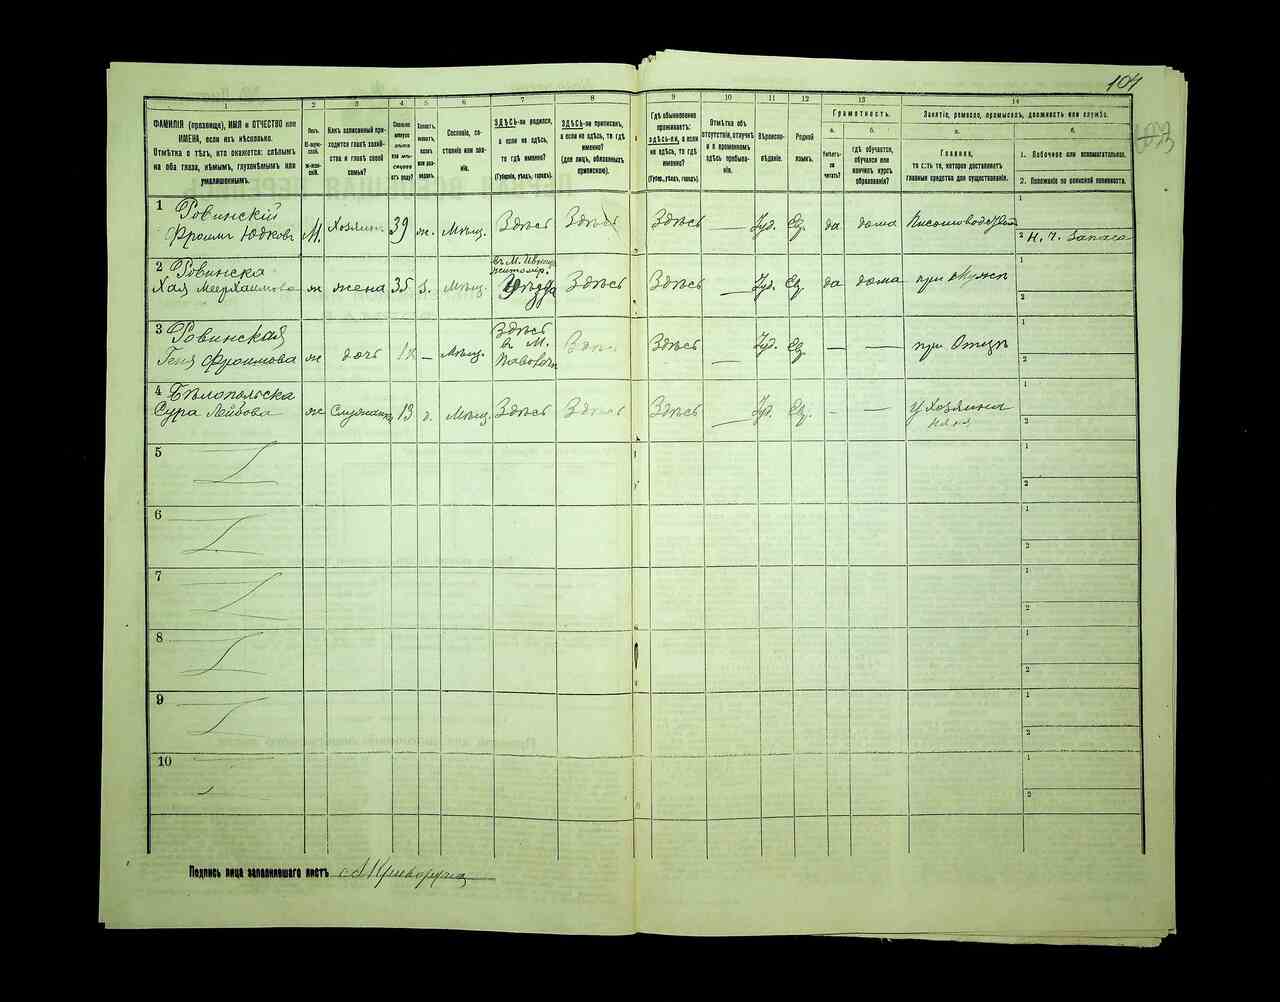 104
1 2 3 4 5 6 7 8 9 10 11 12 13 14
ФАМИЛІЯ (прозвище), ИМЯ и ОТЧЕСТВО или
ИМЕНА, если ихъ нѣсколько.
Отмѣтка о тѣхъ, кто окажется: слѣпымъ
на оба глаза, нѣмымъ, глухонѣмымъ или
умалишеннымъ.
Полъ.
М-муж-
ской.
Ж-жен-
скій.
Какъ записанный при-
ходится главѣ хозяй-
ства и главѣ своей
семьи?
Сословіе, со-
стояніе или зва-
ніе.
ЗДѢСЬ-ли родился,
а если не здѣсь,
то гдѣ именно?
(Губернія, уѣздъ, городъ).
ЗДѢСЬ-ли приписанъ,
а если не здѣсь, то гдѣ
именно?
(для лицъ, обязанныхъ
припискою).
Гдѣ обыкновенно
проживаетъ:
ЗДѢСЬ-ли, а если
не здѣсь, то гдѣ
именно?
(Губер., уѣздъ, городъ).
Отмѣтка объ
отсутствіи, отлучкѣ
и о временномъ
здѣсь пребыва-
ніи.
Вѣроиспо-
вѣданіе.
Родной
языкъ.
Грамотность.
а. б.
Умѣетъ-
ли
читать?
гдѣ обучается,
обучался или
кончилъ курсъ
образованія?
Занятіе, ремесло, промыселъ, должность или служба.
а. б.
Главное,
то есть то, которое доставляетъ
главныя средства для существованія.
1. Побочное или вспомогательное.
2. Положеніе по воинской повинности.
1 Ровинскій
Фроимъ Юдковъ М. Хозяинъ 39 ж. Мѣщ. Здѣсь Здѣсь Здѣсь — Іуд. Ев. да дома 1
2
2 Ровинска
Хая Меерхаимова ж жена 35 з. Мѣщ. Здѣсь Здѣсь — Іуд. Ев. да дома при Мужѣ 1
2
3 Ровинская
Геня Фроимова ж дочь — Мѣщ. Здѣсь
въ М.
Здѣсь — Іуд. Ев. — — при Отцѣ 1
2
4 Бѣлопольска
Сура Лейбова ж Служанка 13 д. Мѣщ. Здѣсь Здѣсь Здѣсь — Іуд. Ев. — — у Хозяина
няня 1
2
5 1
2
6 1
2
7 1
2
8 1
2
9 1
2
10 1
2
Подпись лица заполнявшаго листъ